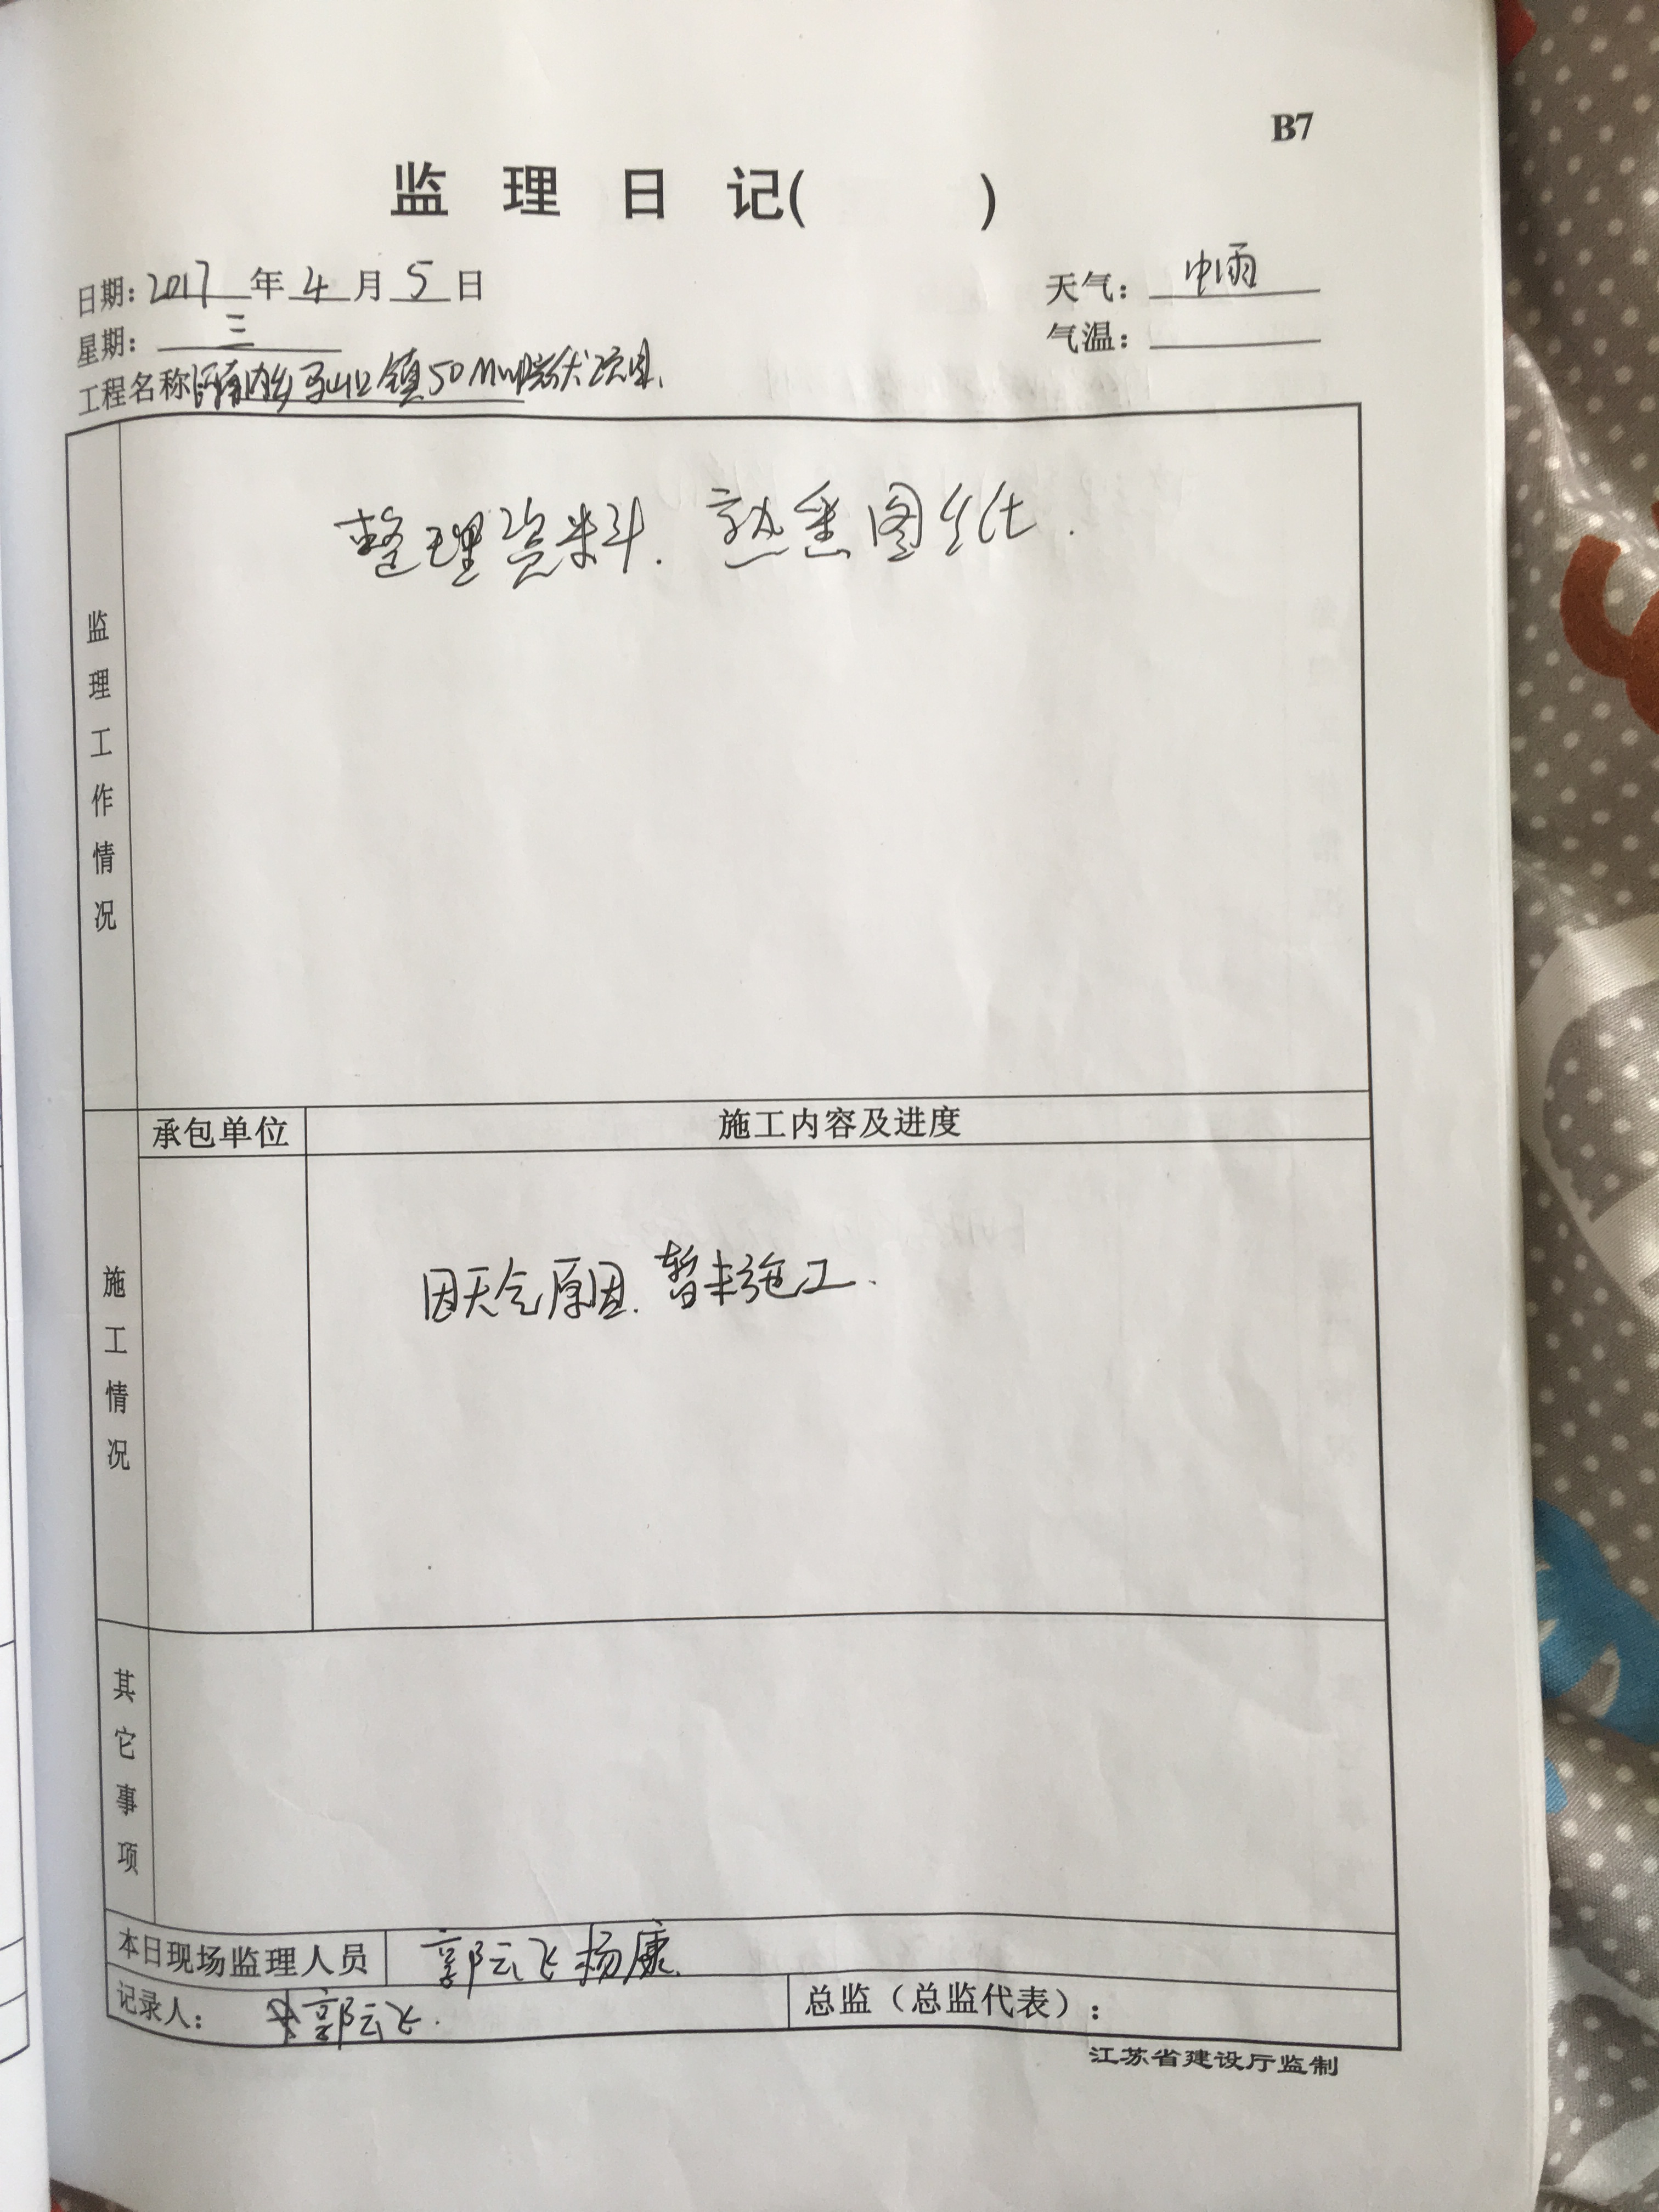 B7
监 理 日 记( )
日期: 2017 年 4 月 5 日
天气: 中雨
星期: 三
气温:
工程名称 河南内乡马山口镇50MWp光伏项目.
监理工作情况
整理资料. 熟悉图纸.
承包单位
施工内容及进度
施工情况
因天气原因. 暂未施工.
其它事项
本日现场监理人员 郭云飞 杨康.
记录人: 郭云飞.
总监（总监代表）:
江苏省建设厅监制